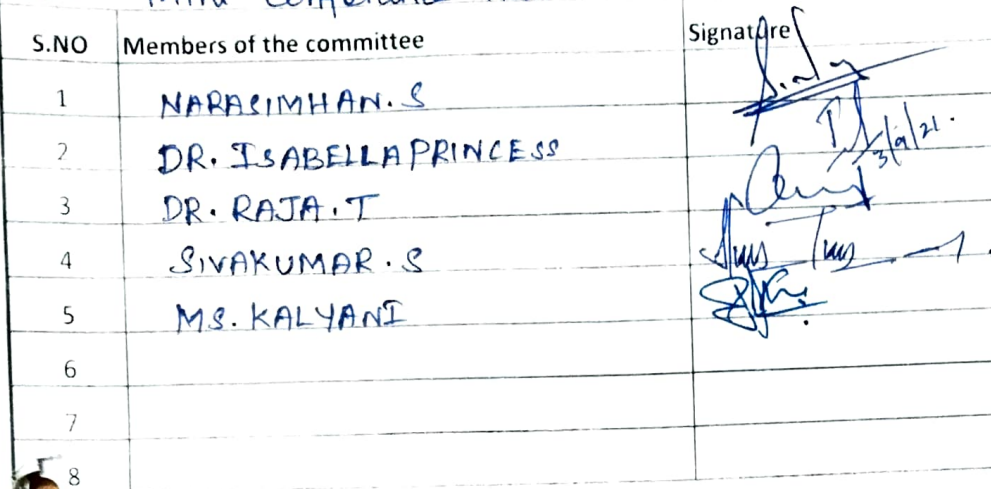 S.NO Members of the committee Signature
1 NARASIMHAN. S
2 DR. ISABELLA PRINCESS 3/9/21.
3 DR. RAJA. T
4 SIVAKUMAR. S
5 MS. KALYANI
6
7
8